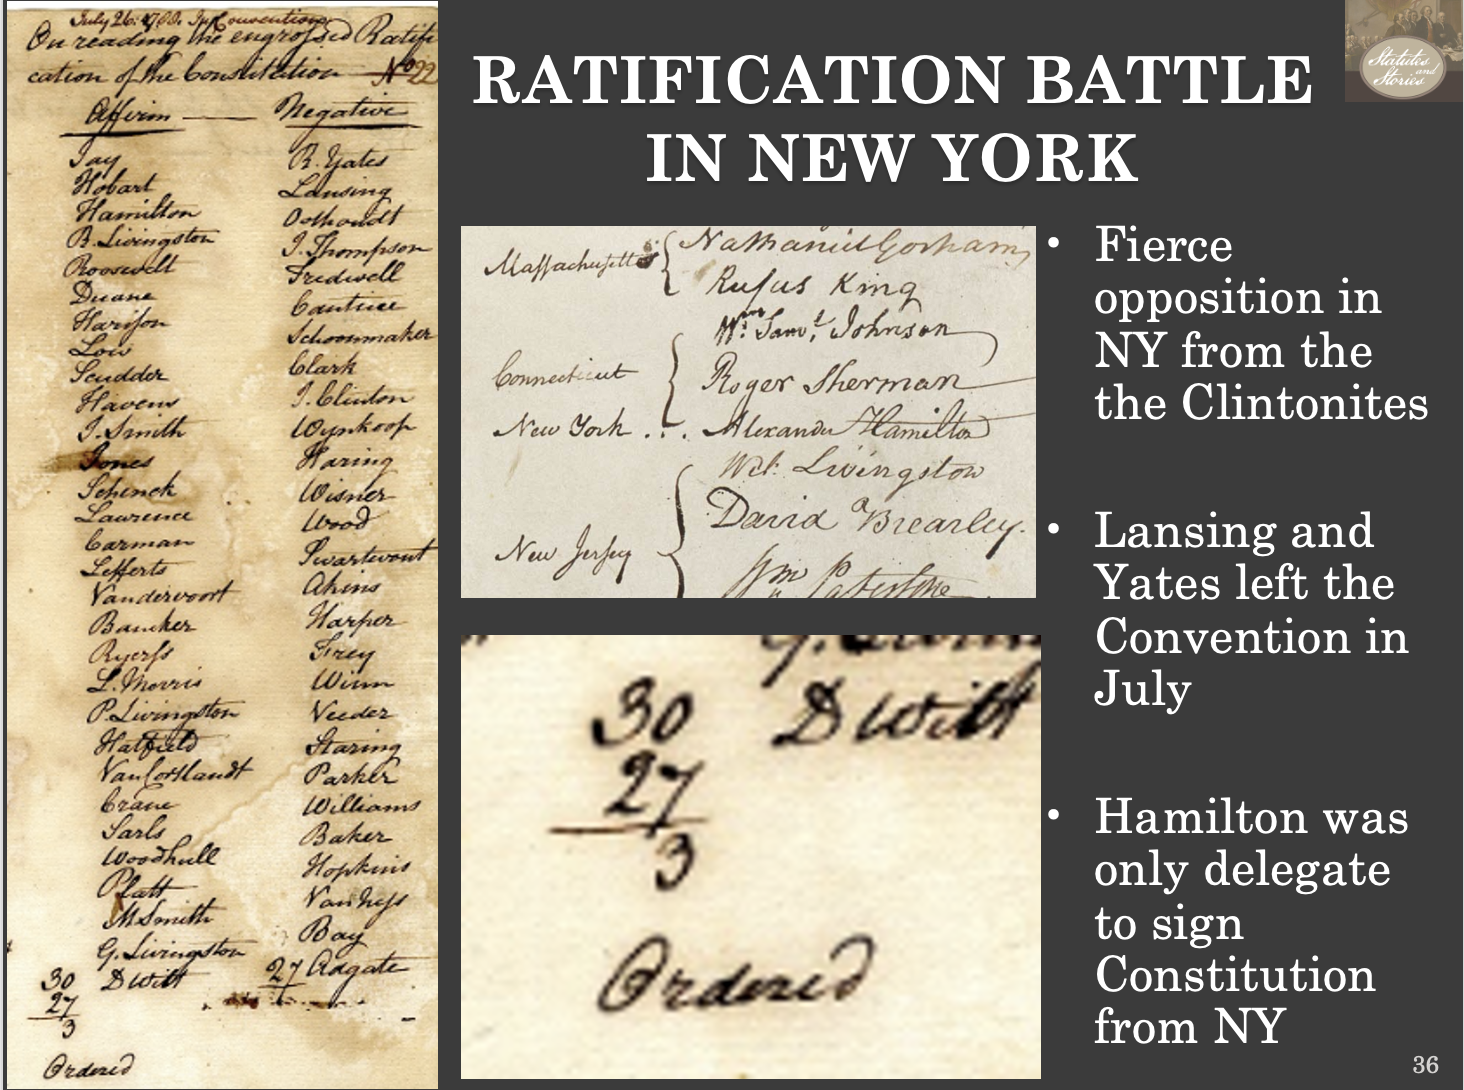 July 26: 1788. In Convention
On reading the engrossed Ratifi
cation of the Constitution No 22
Affirm — Negative
Jay R. Yates
Hobart Lansing
Hamilton Oothoudt
R. Livingston J. Thompson
Roosevelt Tredwell
Duane Cantine
Harison Schoonmaker
Low Clark
Scudder J. Clinton
Havens Wynkoop
J. Smith Haring
Jones Wisner
Schenck Wood
Lawrence Swartwout
Carman Akins
Lefferts Harper
Vandervoort Frey
Bancker Winn
Ryerss Veeder
L. Morris Staring
P. Livingston Parker
Hatfield Williams
Van Cortlandt Baker
Crane Hopkins
Sarls Van Ness
Woodhull Bay
Platt Adgate
M Smith 27
G. Livingston
D Witt
30
27
3
Ordered
RATIFICATION BATTLE
IN NEW YORK
Statutes
and
Stories
Massachusetts { Nathaniel Gorham
Rufus King
Connecticut { Wm: Saml. Johnson
Roger Sherman
New York . . . Alexander Hamilton
New Jersey { Wil: Livingston
David Brearley.
Wm Paterson.
30 D Witt
27
3
Ordered
• Fierce
opposition in
NY from the
the Clintonites
• Lansing and
Yates left the
Convention in
July
• Hamilton was
only delegate
to sign
Constitution
from NY
36